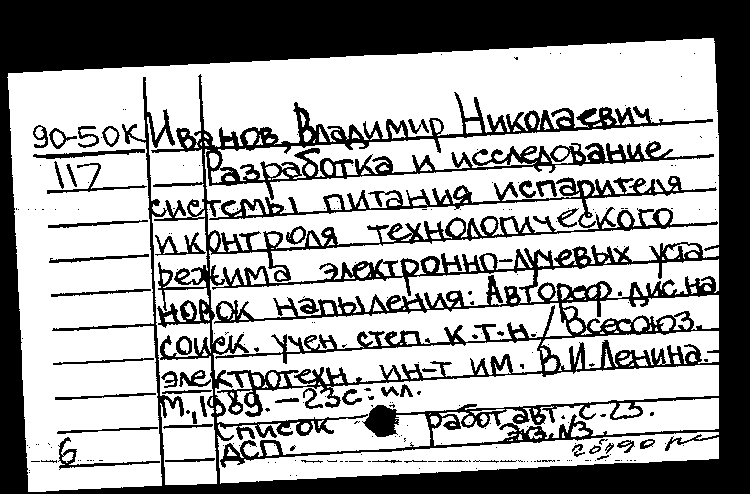 90-50к Иванов, Владимир Николаевич.
117 Разработка и исследование
системы питания испарителя
и контроля технологического
режима электронно-лучевых уста-
новок напыления: Автореф. дис. на
соиск. учен. степ. к.т.н. / Всесоюз.
электротехн. ин-т им. В.И.Ленина.-
М., 1989. - 23с: ил.
Список работ авт.: с.23.
6 ДСП. Экз. №3.